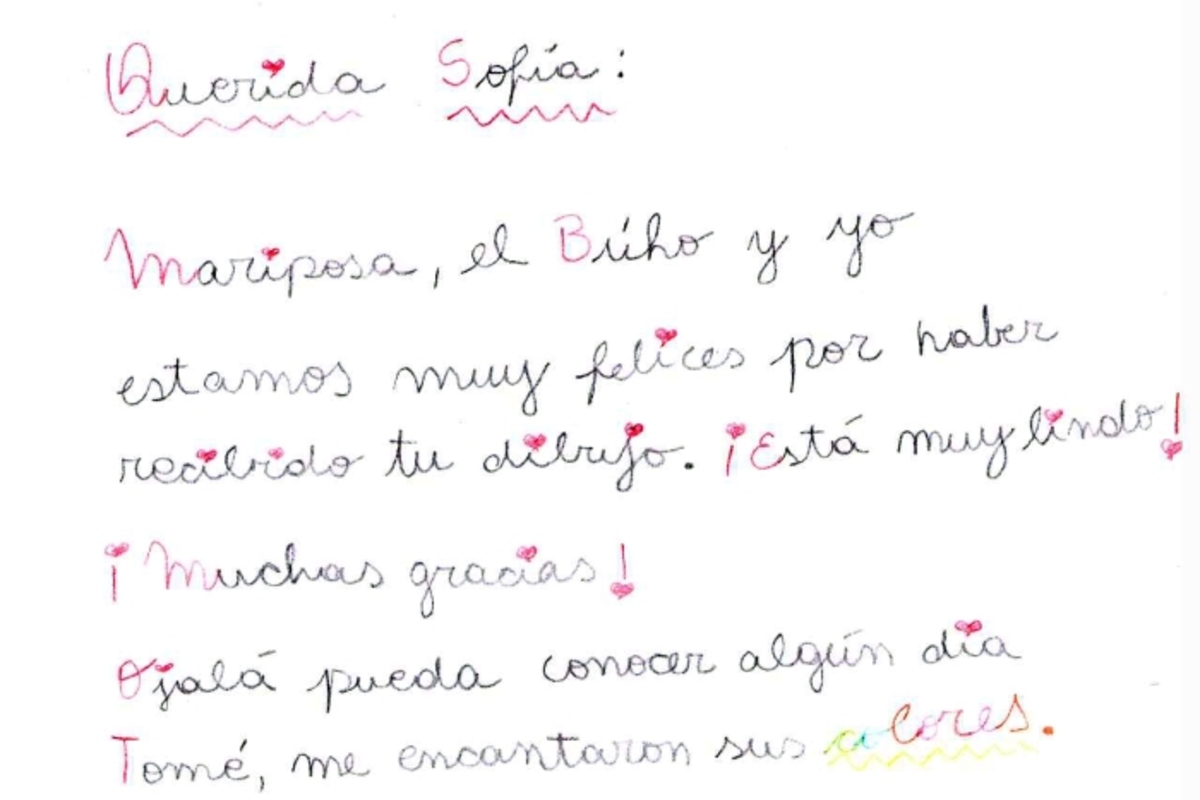 Querida Sofía:
Mariposa, el Búho y yo
estamos muy felices por haber
recibido tu dibujo. ¡Está muy lindo!
¡Muchas gracias!
Ojalá pueda conocer algún día
Tomé, me encantaron sus colores.